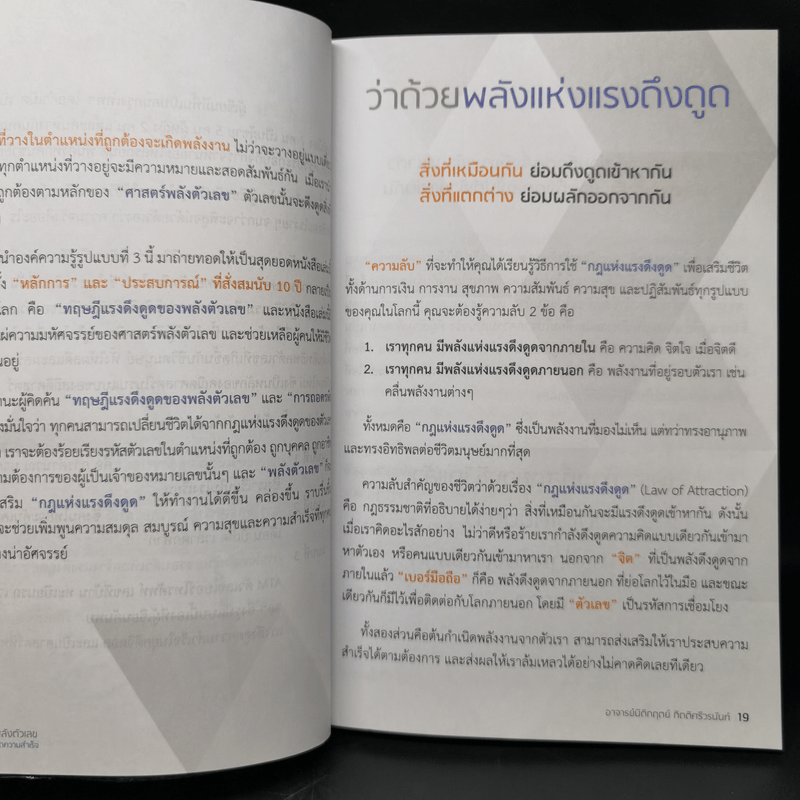 ที่วางในตำแหน่งที่ถูกต้องจะเกิดพลังงาน ไม่ว่าจะวางอยู่แบบเดี่ยว
ทุกตำแหน่งที่วางอยู่จะมีความหมายและสอดสัมพันธ์กัน เมื่อเรานำ
ถูกต้องตามหลักของ “ศาสตร์พลังตัวเลข” ตัวเลขนั้นจะดึงดูดสิ่ง
นำองค์ความรู้รูปแบบที่ 3 นี้ มาถ่ายทอดให้เป็นสุดยอดหนังสือ
“หลักการ” และ “ประสบการณ์” ที่สั่งสมนับ 10 ปี กลาย
โลก คือ “ทฤษฎีแรงดึงดูดของพลังตัวเลข” และหนังสือเล่มนี้
แผ่ความมหัศจรรย์ของศาสตร์พลังตัวเลข และช่วยเหลือผู้คนให้มีชีวิต
อยู่
ฐานะผู้คิดค้น “ทฤษฎีแรงดึงดูดของพลังตัวเลข” และ “การถอดรหัส
มั่นใจว่า ทุกคนสามารถเปลี่ยนชีวิตได้จากกฎแห่งแรงดึงดูดของตัวเลข
เราจะต้องร้อยเรียงรหัสตัวเลขในตำแหน่งที่ถูกต้อง ถูกบุคคล
ความต้องการของผู้เป็นเจ้าของหมายเลขนั้นๆ และ “พลังตัวเลข”
เสริม “กฎแห่งแรงดึงดูด” ให้ทำงานได้ดีขึ้น คล่องขึ้น ราบรื่นขึ้น
จะช่วยเพิ่มพูนความสมดุล สมบูรณ์ ความสุขและความสำเร็จ
อย่างน่าอัศจรรย์
พลังตัวเลข
ว่าด้วยพลังแห่งแรงดึงดูด
สิ่งที่เหมือนกัน ย่อมดึงดูดเข้าหากัน
สิ่งที่แตกต่าง ย่อมผลักออกจากกัน
“ความลับ” ที่จะทำให้คุณได้เรียนรู้วิธีการใช้ “กฎแห่งแรงดึงดูด” เพื่อเสริมชีวิต
ทั้งด้านการเงิน การงาน สุขภาพ ความสัมพันธ์ ความสุข และปฏิสัมพันธ์ทุกรูปแบบ
ของคุณในโลกนี้ คุณจะต้องรู้ความลับ 2 ข้อ คือ
1. เราทุกคน มีพลังแห่งแรงดึงดูดจากภายใน คือ ความคิด จิตใจ เมื่อจิตดี
2. เราทุกคน มีพลังแห่งแรงดึงดูดภายนอก คือ พลังงานที่อยู่รอบตัวเรา เช่น
คลื่นพลังงานต่างๆ
ทั้งหมดคือ “กฎแห่งแรงดึงดูด” ซึ่งเป็นพลังงานที่มองไม่เห็น แต่ทว่าทรงอานุภาพ
และทรงอิทธิพลต่อชีวิตมนุษย์มากที่สุด
ความลับสำคัญของชีวิตว่าด้วยเรื่อง “กฎแห่งแรงดึงดูด” (Law of Attraction)
คือ กฎธรรมชาติที่อธิบายได้ง่ายๆว่า สิ่งที่เหมือนกันจะมีแรงดึงดูดเข้าหากัน ดังนั้น
เมื่อเราคิดอะไรสักอย่าง ไม่ว่าดีหรือร้ายเรากำลังดึงดูดความคิดแบบเดียวกันเข้ามา
หาตัวเอง หรือคนแบบเดียวกันเข้ามาหาเรา นอกจาก “จิต” ที่เป็นพลังดึงดูดจาก
ภายในแล้ว “เบอร์มือถือ” ก็คือ พลังดึงดูดจากภายนอก ที่ย่อโลกไว้ในมือ และขณะ
เดียวกันก็มีไว้เพื่อติดต่อกับโลกภายนอก โดยมี “ตัวเลข” เป็นรหัสการเชื่อมโยง
ทั้งสองส่วนคือต้นกำเนิดพลังงานจากตัวเรา สามารถส่งเสริมให้เราประสบความ
สำเร็จได้ตามต้องการ และส่งผลให้เราล้มเหลวได้อย่างไม่คาดคิดเลยทีเดียว
อาจารย์นิติกฤตย์ กิตติศรีวรนันท์ 19